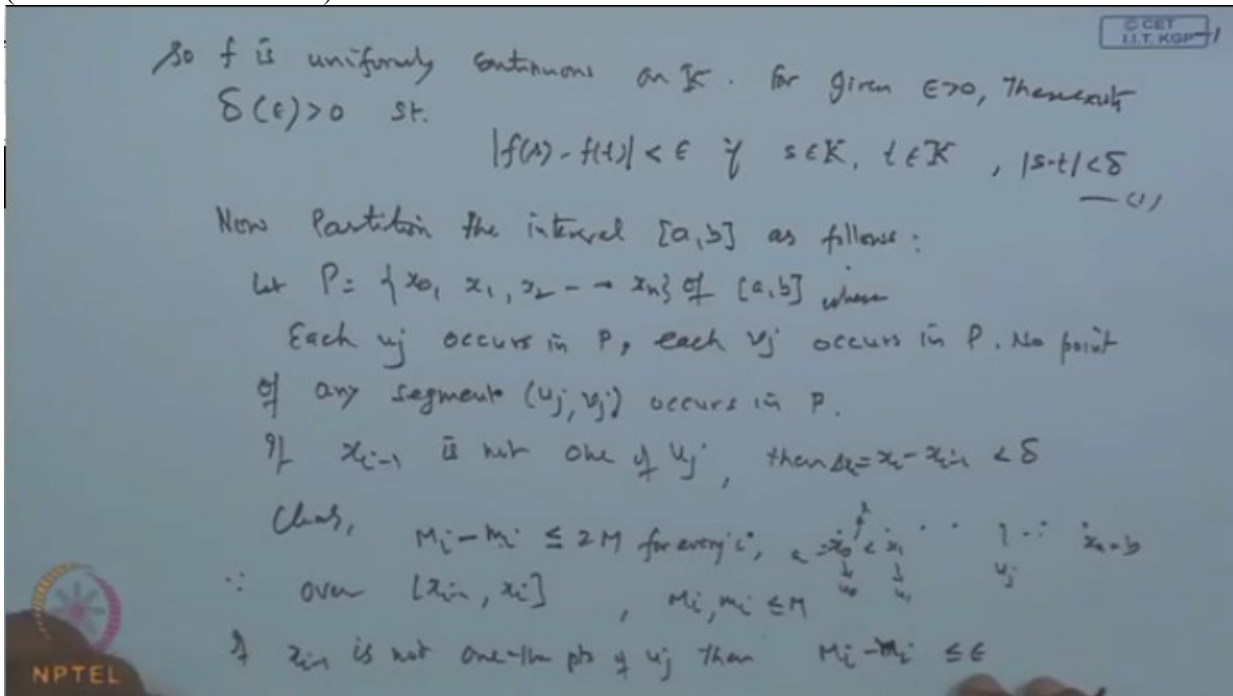 © CET
I.I.T. KGP
So f is uniformly continuous on K. For given ε>0, there exists
δ(ε)>0 st.
|f(s) - f(t)| < ε if s∈K, t∈K, |s-t|<δ
— (1)
Now Partition the interval [a,b] as follows:
Let P = {x0, x1, x2 - - xn} of [a,b] where
Each uj occurs in P, each vj occurs in P. No point
of any segment (uj, vj) occurs in P.
If xi-1 is not one of uj, then Δxi = xi - xi-1 < δ
Clearly, Mi - mi ≤ 2M for every i, a = x0 < x1 . . . . xn = b
u0 u1 uj
∵ over [xi-1, xi], Mi, mi ≤ M
If xi-1 is not one the pts of uj then Mi - mi ≤ ε
NPTEL